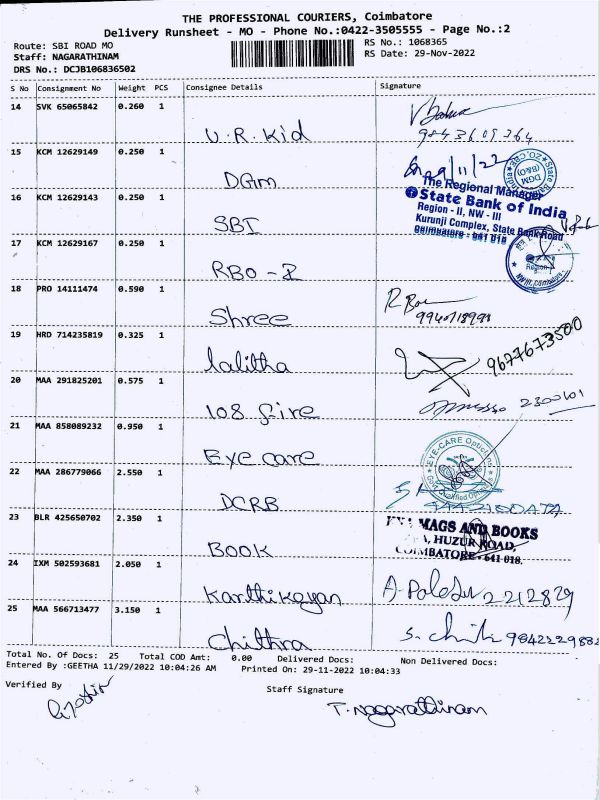 THE PROFESSIONAL COURIERS, Coimbatore
Delivery Runsheet - MO - Phone No.:0422-3505555 - Page No.:2
Route: SBI ROAD MO
RS No.: 1068365
Staff: NAGARATHINAM
RS Date: 29-Nov-2022
DRS No.: DCJB106836502
S No Consignment No Weight PCS Consignee Details Signature
14 SVK 65065842 0.260 1
U.R. Kid
15 KCM 12629149 0.250 1
DGm
16 KCM 12629143 0.250 1
SBI
The Regional Manager
State Bank of India
Region - II, NW - III
Kurunji Complex, State Bank Road
Coimbatore - 641 018
17 KCM 12629167 0.250 1
RBO - I
18 PRO 14111474 0.590 1
Shree
19 HRD 714235819 0.325 1
lalitha
9677673500
20 MAA 291825201 0.575 1
108 fire
21 MAA 858089232 0.950 1
Eye care
EYE-CARE Opticians
22 MAA 286779066 2.550 1
DCRB
23 BLR 425650702 2.350 1
BOOK
MAGS AND BOOKS
HUZUR ROAD,
COIMBATORE - 641 018.
24 IXM 502593681 2.050 1
Karthikeyan
2212829
25 MAA 566713477 3.150 1
Chithra
9842229882
Total No. Of Docs: 25 Total COD Amt: 0.00 Delivered Docs: Non Delivered Docs:
Entered By :GEETHA 11/29/2022 10:04:26 AM Printed On: 29-11-2022 10:04:33
Verified By
Staff Signature
T. Nagarathinam